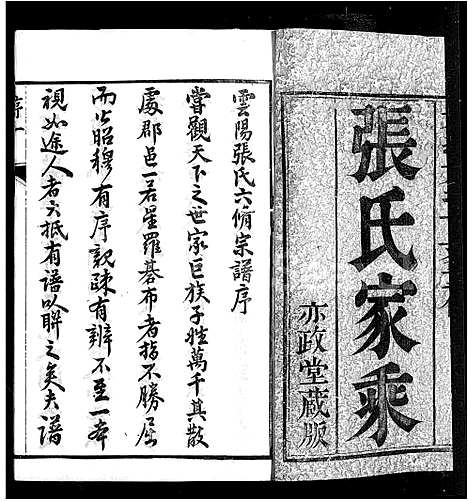 張氏家乘
亦政堂藏版
雲陽張氏六脩宗譜序
嘗觀天下之世家巨族子姓萬千其散
處郡邑一若星羅碁布者指不勝屈
而公昭穆有序親疎有辨不至一本
視如途人者大抵有譜以聯之矣夫譜
序一